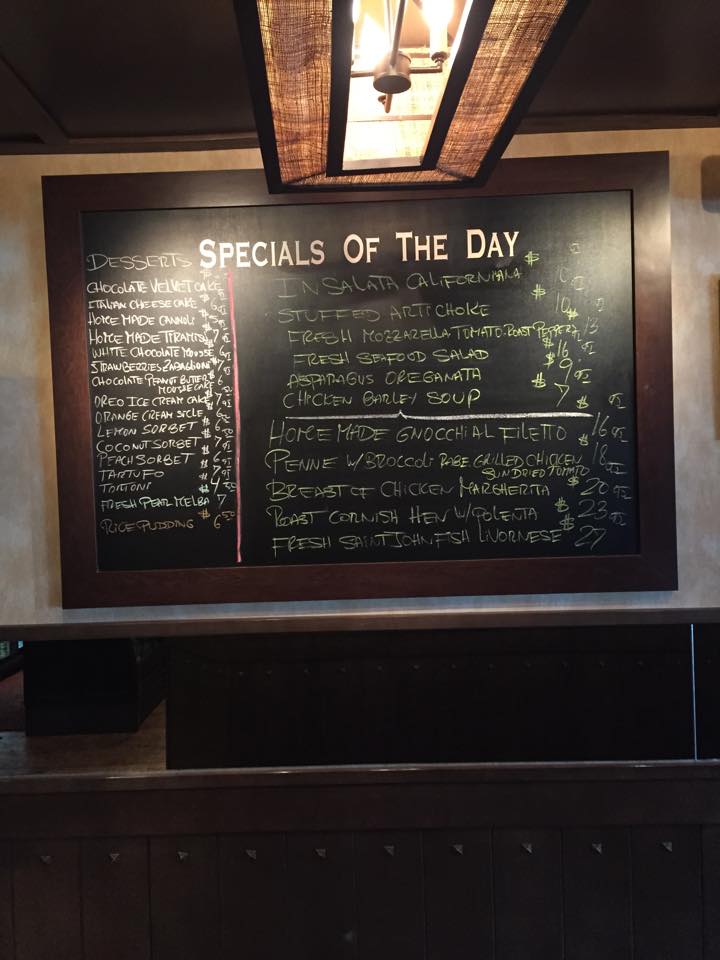 SPECIALS OF THE DAY
DESSERTS
CHOCOLATE VELVET CAKE
ITALIAN CHEESE CAKE
HOME MADE CANNOLI
HOME MADE TIRAMISU 7
WHITE CHOCOLATE MOUSSE 6
STRAWBERRIES ZABAGLIONE
CHOCOLATE PEANUT BUTTER 6
MOUSSE CAKE
OREO ICE CREAM CAKE $7
ORANGE CREAM SICLE
LEMON SORBET $6
COCONUT SORBET $7
PEACH SORBET $6
TARTUFO $7
TORTONI $4 50
FRESH PEAR MELBA 7
RICE PUDDING $6 50
INSALATA CALIFORNIANA $
STUFFED ARTICHOKE $10
FRESH MOZZARELLA TOMATO ROAST PEPPERS 13
FRESH SEAFOOD SALAD $16
ASPARAGUS OREGANATA $9
CHICKEN BARLEY SOUP $7
HOME MADE GNOCCHI AL FILETTO $16 95
PENNE W/BROCCOLI RABE GRILLED CHICKEN 18 95
SUNDRIED TOMATO
BREAST OF CHICKEN MARGHERITA $20 95
ROAST CORNISH HEN W/POLENTA $23 95
FRESH SAINT JOHN FISH LIVORNESE $27